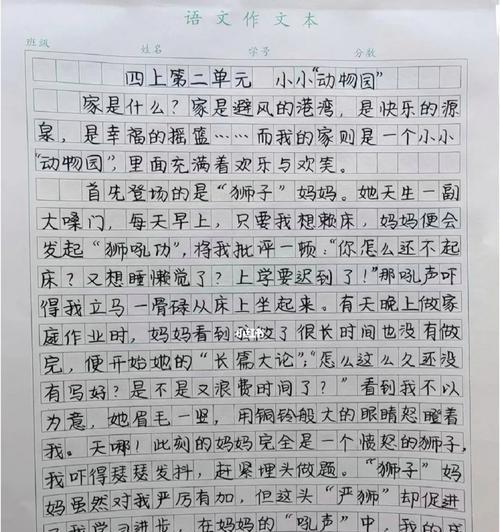 语文作文本
班级 姓名 学号 分数
四上第二单元 小小“动物园”
家是什么？家是避风的港湾，是快乐的源
泉，是幸福的摇篮……而我的家则是一个小小
“动物园”，里面充满着欢乐与欢笑。
首先登场的是“狮子”妈妈。她天生一副
大嗓门，每天早上，只要我想赖床，妈妈便会
发起“狮吼功”，将我批评一顿：“你怎么还不起
床？又想睡懒觉了？上学要迟到了！”那吼声吓
得我立马一骨碌从床上坐起来。有天晚上做家
庭作业时，妈妈看到我做了很长时间也没有做
完，便开始她的“长篇大论”：“怎么这么久还没
有写好？是不是又浪费时间了？”看到我不以
为意，她眉毛一竖，用铜铃般大的眼睛怒瞪着
我。天哪！此刻的妈妈完全是一个愤怒的狮子，
我吓得瑟瑟发抖，赶紧埋头做题。“狮子”妈
妈虽然对我严厉有加，但这头“严狮”却促进
了我学习进步，在妈妈的“吼声”中，我的